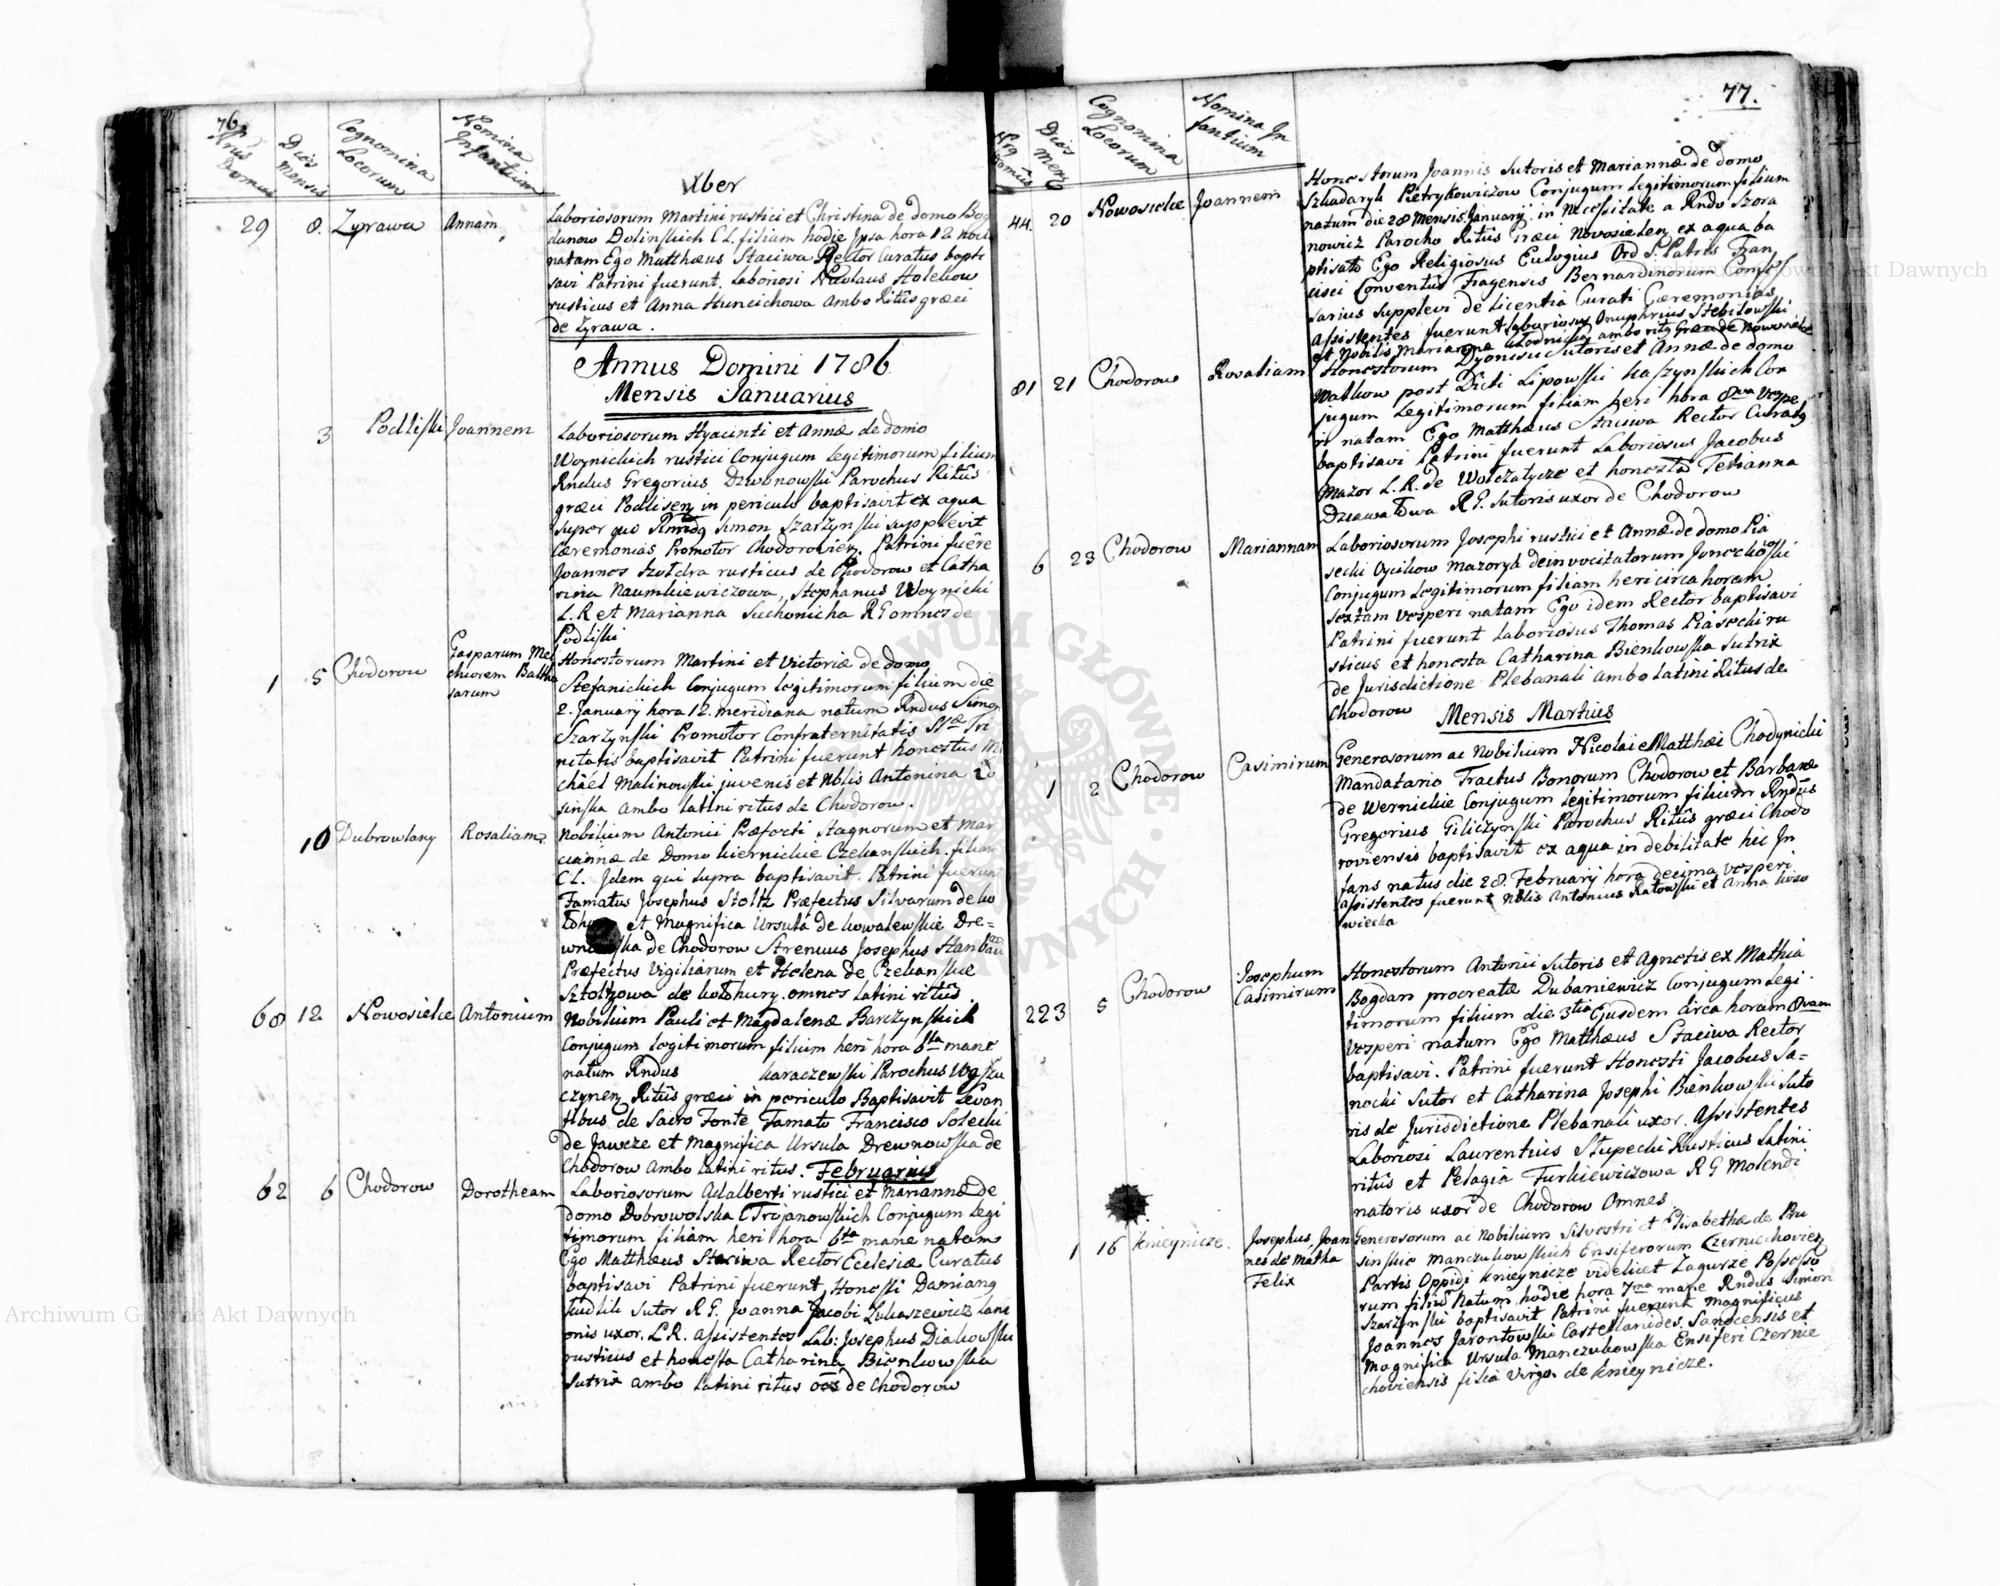 76
Nrus Domus
Dies Mensis
Cognomina Locorum
Nomina Infantium
Xber
29 8. Zyrawa Annam
Laboriosorum Martini rustici et Christina de domo Bog
danow Dolinskich CL. filiam hodie Ipsa hora 12 noctis
natam Ego Matthæus Staciwa Rector Curatus bapti
savi Patrini fuerunt. Laboriosi Nicolaus Holekow
rusticus et Anna Huneichowa Ambo Ritûs græci
de Zyrawa.
Annus Domini 1786
Mensis Januarius
3 Podliski Joannem
Laboriosorum Hyacinti et Annæ de domo
Woynickich rustici Conjugum Legitimorum filium
Rndus Gregorius Dzwonowski Parochus Ritûs
græci Podlisen in periculo baptisavit ex aqua
super quo Simon Szarzynski supplevit
Cæremonias Promotor Chodorovien. Patrini fuêre
Joannes Szoldra rusticus de Chodorow et Catha
rina Naumkiewiczowa, Stephanus Woynicki
L.R et Marianna Suchonicha RG omnes de
Podliski
1 5 Chodorow Gasparum Mel
chiorem Baltha
sarum
Honestorum Martini et Victoriæ de domo
Stefanickich Conjugum Legitimorum filium die
2. January hora 12. meridiana natum Rndus Simon
Szarzynski Promotor Confraternitatis SSæ Tri
nitatis baptisavit Patrini fuerunt honestus Mi
chael Malinowski juvenis et Nblis Antonina Lo
sinska Ambo Latini ritus de Chodorow.
10 Dubrowlany Rosaliam
Nobilium Antonii Præfecti Stagnorum et Mar
cianna de Domo kiernickie Czekanskich. filiam
CL. Idem qui supra baptisavit. Patrini fuerunt
Famatus Josephus Stoltz Præfectus Silvarum de ko
et Magnifica Ursula de kowalewskie Dre=
de Chodorow Strenuus Josephus
Præfectus Vigiliarum et Helena de Czekanskie
Sztoltzowa de kotohury. omnes Latini ritûs
68 12 Nowosielce Antonium
Nobilium Pauli et Magdalenæ Barczynskich
Conjugum Legitimorum filium heri hora 6ta mane
natum Rndus karaczewski Parochus
Ritûs græci in periculo Baptisavit Levan
tibus de Sacro Fonte Famato Francisco Solecki
de Jawcze et Magnifica Ursula Drewnowska de
Chodorow Ambo Latini ritus. Februarius
62 6 Chodorow Dorotheam
Laboriosorum Adalberti rustici et Mariannæ de
domo Dobrowolska Trojanowskich Conjugum Legi
timorum filiam heri hora 6ta mane natam
Ego Matthæus Staciwa Rector Ecclesiæ Curatus
baptisavi Patrini fuerunt, Honesti Damiang
kudlik Sutor R G. Joanna Jacobi Lukaszewicz lani
onis uxor. L.R. Assistentes Lab: Josephus Diakowski
rusticus et honesta Catharina Bienkowska
Sutrix ambo Latini ritus oes de Chodorow
77.
Nrg Domûs
Dies Mens
Cognomina Locorum
Nomina In
fantium
44. 20 Nowosielce Joannem
Honestorum Joannis Sutoris et Mariannæ de domo
Szkadaryk Pietrykowiczow Conjugum Legitimorum filium
natum die 28 Mensis January. in Necessitate a Rndo Szora
nowicz Parocho Ritûs Græci Novosielen ex aqua ba
ptisato Ego Religiosus Eulogius Ord S. Patris Fran
cisci Conventûs Fragensis Bernardinorum
sarius Supplevi de Licentia Curati Cæremonias
Assistentes fuerunt Laboriosus Onuphrius Stebilowski
et Nobilis Marianna ambo ritg Græc de Nowosielce
81 21 Chodorow Rosaliam
Honestorum Dyonisii Sutoris et Annæ de domo
Walkow post Dicti Lipowski kaszynskich Con
jugum Legitimorum filiam heri hora 8va Vespe
ri natam Ego Matthæus Staciwa Rector Curatg
baptisavi Patrini fuerunt Laboriosus Jacobus
Mazor L.R. de Wolczatycze et honesta Tetianna
R G. Sutoris uxor de Chodorow
6 23 Chodorow Mariannam
Laboriosorum Josephi rustici et Annæ de domo Pia
secki Mazoryk
Conjugum Legitimorum filiam heri circa horam
sextam vesperi natam Ego idem Rector baptisavi
Patrini fuerunt Laboriosus Thomas Piasecki ru
sticus et honesta Catharina Bienkowska Sutrix
de Jurisdictione Plebanali ambo Latini Ritus de
Chodorow
Mensis Martius
1 2 Chodorow Casimirum
Generosorum ac Nobilium Nicolai Matthæi Chodynicki
Mandatario Tractus Bonorum Chodorow et Barbaræ
de Wernickie Conjugum Legitimorum filium Rndûs
Gregorius Giliczynski Parochus Ritûs græci Chodo
roviensis baptisavit ex aqua in debilitate hic In
fans natus die 28. February hora decima vesperi
assistentes fuerunt Nblis Antonius Ratowski et Anna koso
wiecka
223 5 Chodorow Josephum
Casimirum
Honestorum Antonii Sutoris et Agnetis ex Mathia
Bogdan procreatæ Dubaniewicz Conjugum Legi
timorum filium die 3tia Ejusdem circa horam 8vam
Vesperi natum Ego Matthæus Staciwa Rector
baptisavi. Patrini fuerunt Honesti Jacobus Sa=
nocki Sutor et Catharina Josephi Bienkowski Suto
ris de Jurisdictione Plebanali uxor. Assistentes
Laboriosi Laurentius Slupecki Rusticus Latini
ritûs et Pelagia Furkiewiczowa R G Molendi
natoris uxor de Chodorow Omnes
1 16 knieynicze. Josephus, Joan
nes de Matha
Felix
Generosorum ac Nobilium Silvestri et Elisabethæ de Pru
sinskie Manczukowskich Ensiferorum Czerniechovien
Partis Oppidi knieynicze videlicet Zagurze Possesso
rum filiū Natum, hodie hora 7ma mane Rndus Simon
Szarzynski baptisavit Patrini fuerunt Magnificus
Joannes Jarontowski Castellanides. Sanocensis et
Magnifica Ursula Manczukowska Ensiferi Czernie
choviensis filia Virgo de knieynicze.
Archiwum Główne Akt Dawnych
Archiwum Główne Akt Dawnych